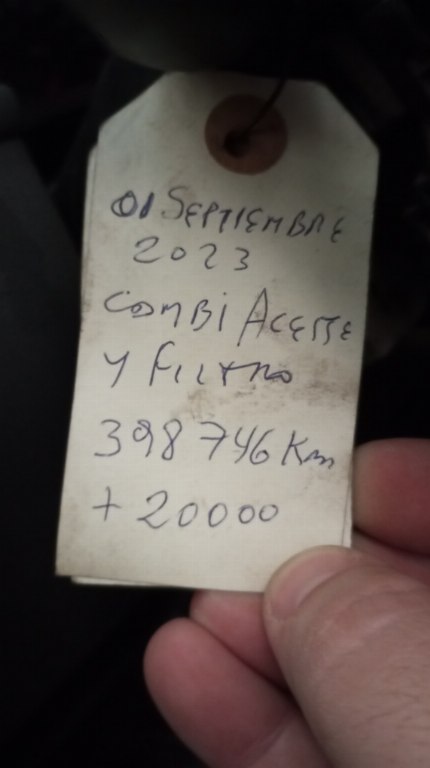 01 SEPTIEMBRE
2023
COMBI ACEITE
Y FILTRO
398746 Km
+ 20000